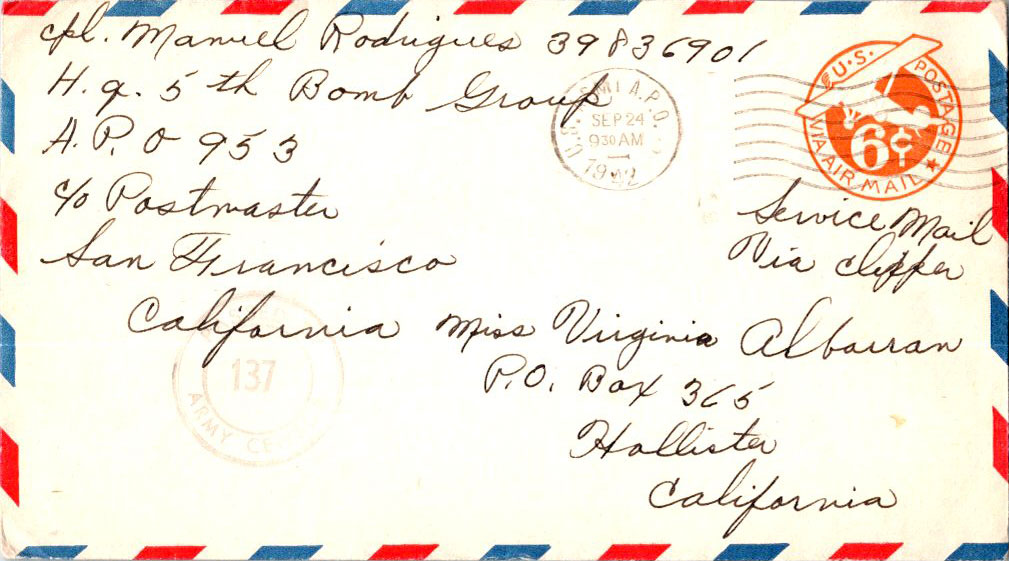 cpl. Manuel Rodrigues 39836901
H.q. 5th Bomb Group
A.P.O 953
c/o Postmaster
San Francisco
California
U.S. A.P.O.
SEP 24
9 30 AM
1942
U.S. POSTAGE
6¢
VIA AIR MAIL
Service Mail
Via clipper
Miss Virginia Albarran
P.O. Box 365
Hollister
California
137
ARMY